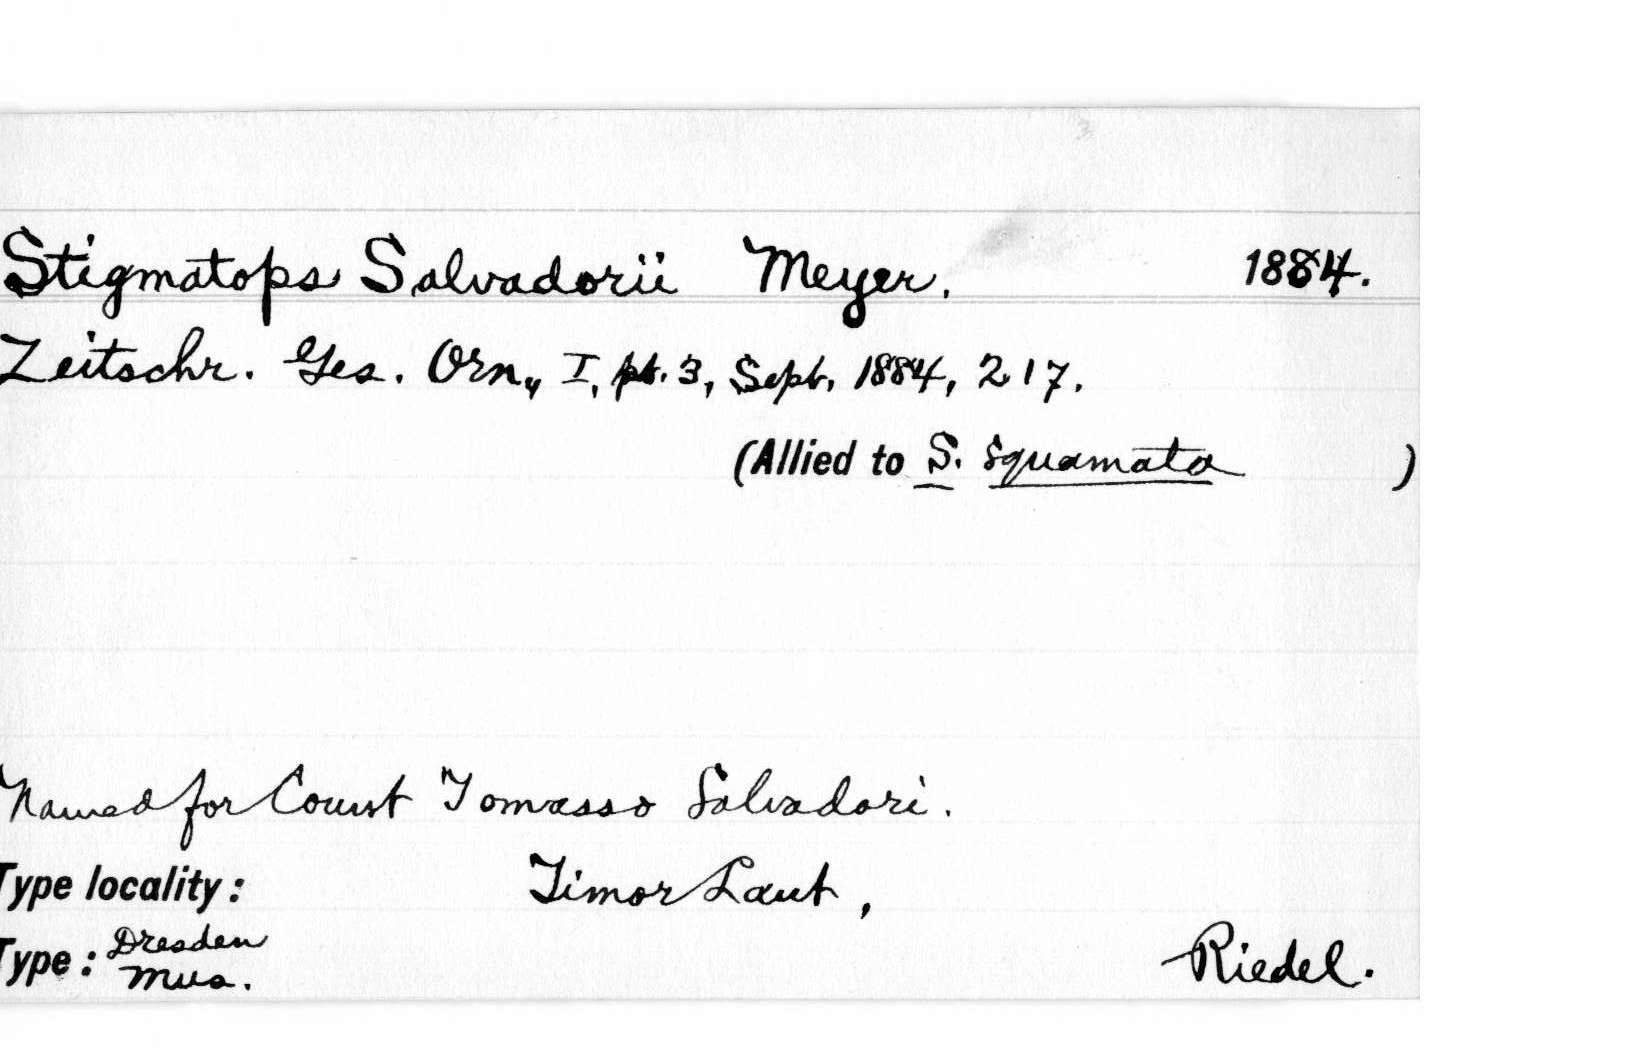 Stigmatops Salvadorii Meyer. 1884.
Zeitschr. Ges. Orn., I, pt. 3, Sept. 1884, 217.
(Allied to S. squamata )
Named for Count Tomasso Salvadori.
Type locality: Timor Laut,
Type: Dresden Mus. Riedel.